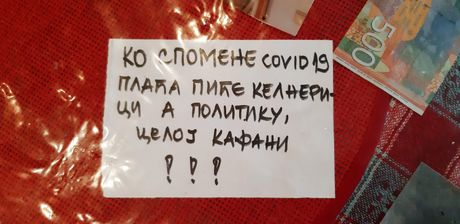 КО СПОМЕНЕ COVID19
ПЛАЋА ПИЋЕ КЕЛНЕРИ-
ЦИ А ПОЛИТИКУ,
ЦЕЛОЈ КАФАНИ
! ! !
500